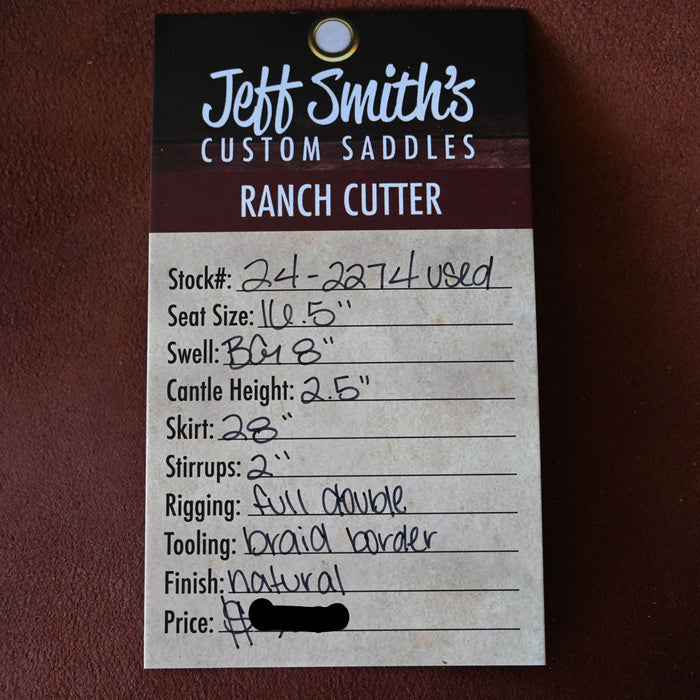 Jeff Smith's
CUSTOM SADDLES
RANCH CUTTER
Stock#: 24-2274 used
Seat Size: 16.5"
Swell: BG 8"
Cantle Height: 2.5"
Skirt: 28"
Stirrups: 2"
Rigging: full double
Tooling: braid border
Finish: natural
Price: $